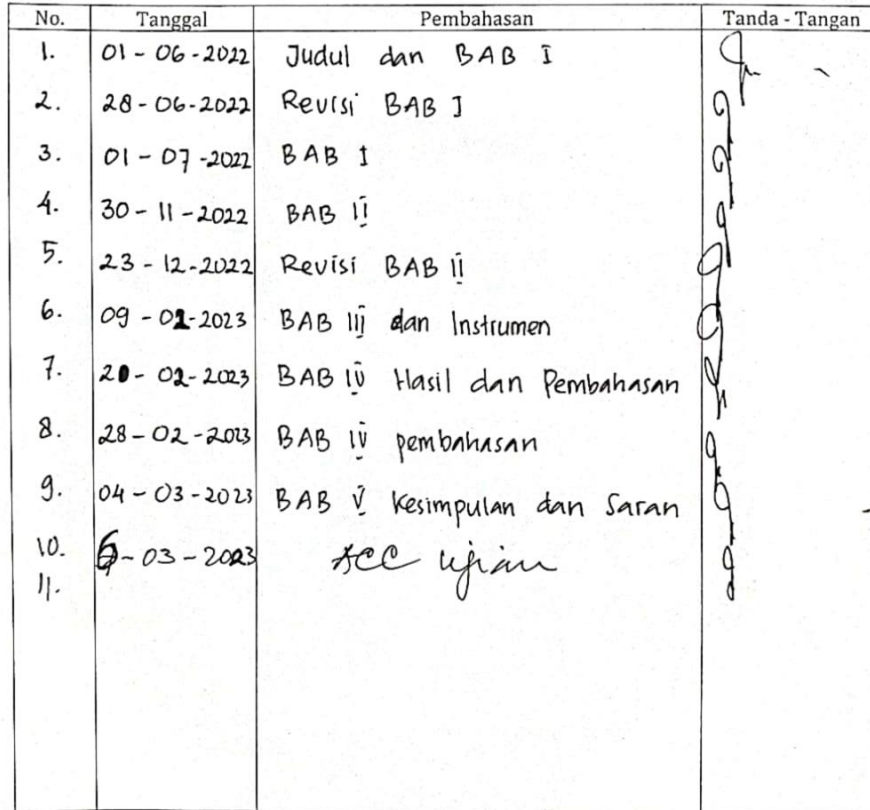 No. Tanggal Pembahasan Tanda - Tangan
1. 01 - 06 - 2022 Judul dan BAB I
2. 28 - 06 - 2022 Revisi BAB I
3. 01 - 07 - 2022 BAB I
4. 30 - 11 - 2022 BAB II
5. 23 - 12 - 2022 Revisi BAB II
6. 09 - 02 - 2023 BAB III dan Instrumen
7. 20 - 02 - 2023 BAB IV Hasil dan Pembahasan
8. 28 - 02 - 2023 BAB IV pembahasan
9. 04 - 03 - 2023 BAB V Kesimpulan dan Saran
10. 6 - 03 - 2023 ACC Ujian
11.